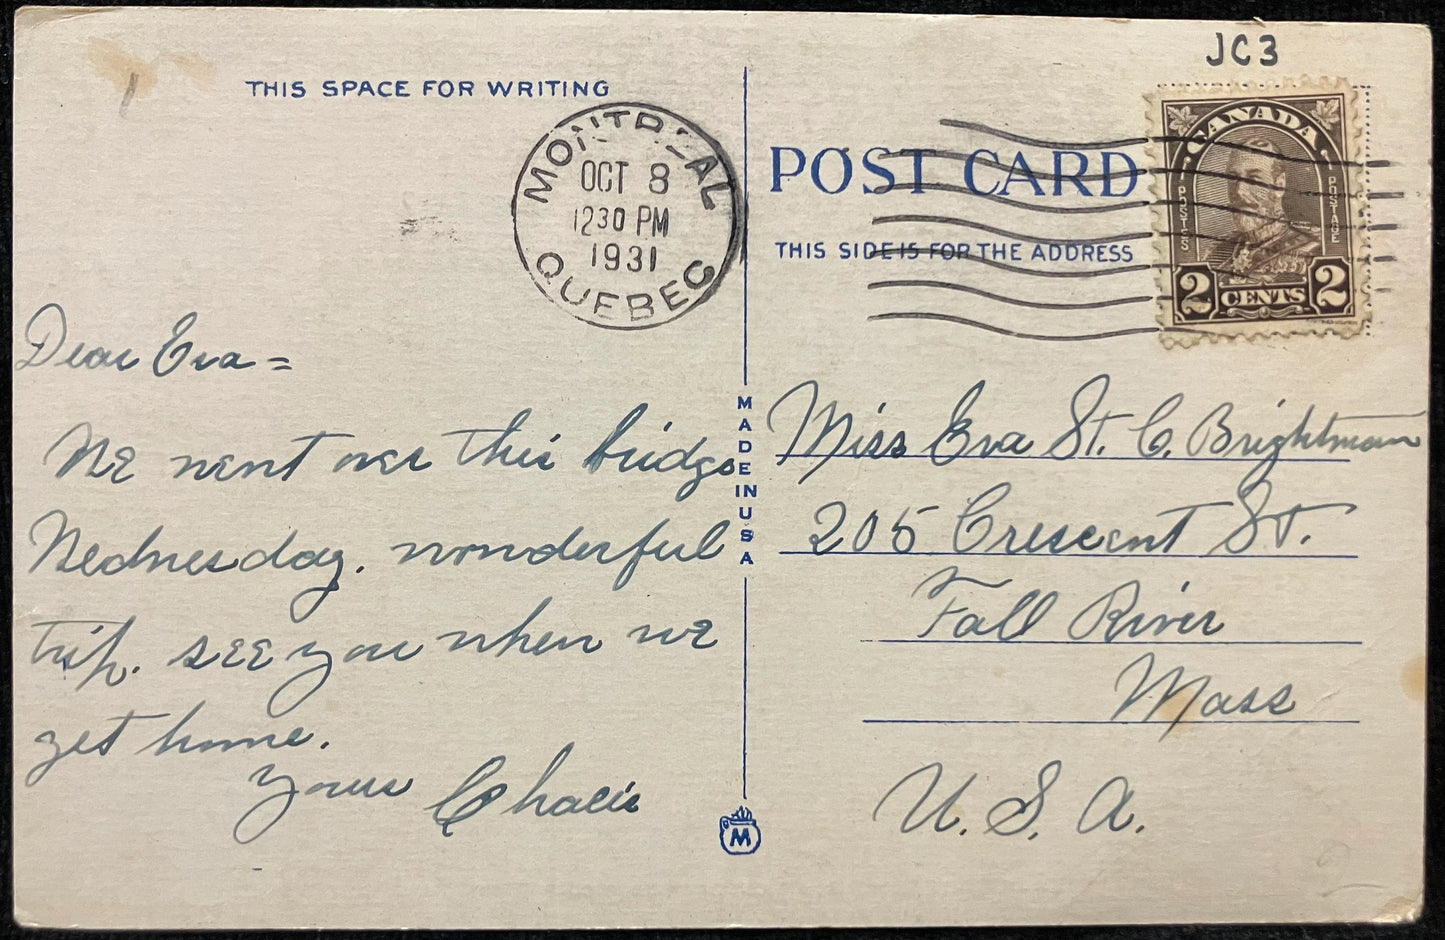 JC3
THIS SPACE FOR WRITING
MONTREAL
OCT 8
12 30 PM
1931
QUEBEC
Dear Eva =
We went over this bridge
Wednesday. wonderful
trip. see you when we
get home.
Yours
POST CARD
THIS SIDE IS FOR THE ADDRESS
CANADA
POSTES
POSTAGE
2 CENTS 2
MADE IN USA
Miss Eva St. C. Brightman
205 Crescent St.
Fall River
Mass
U. S. A.
M